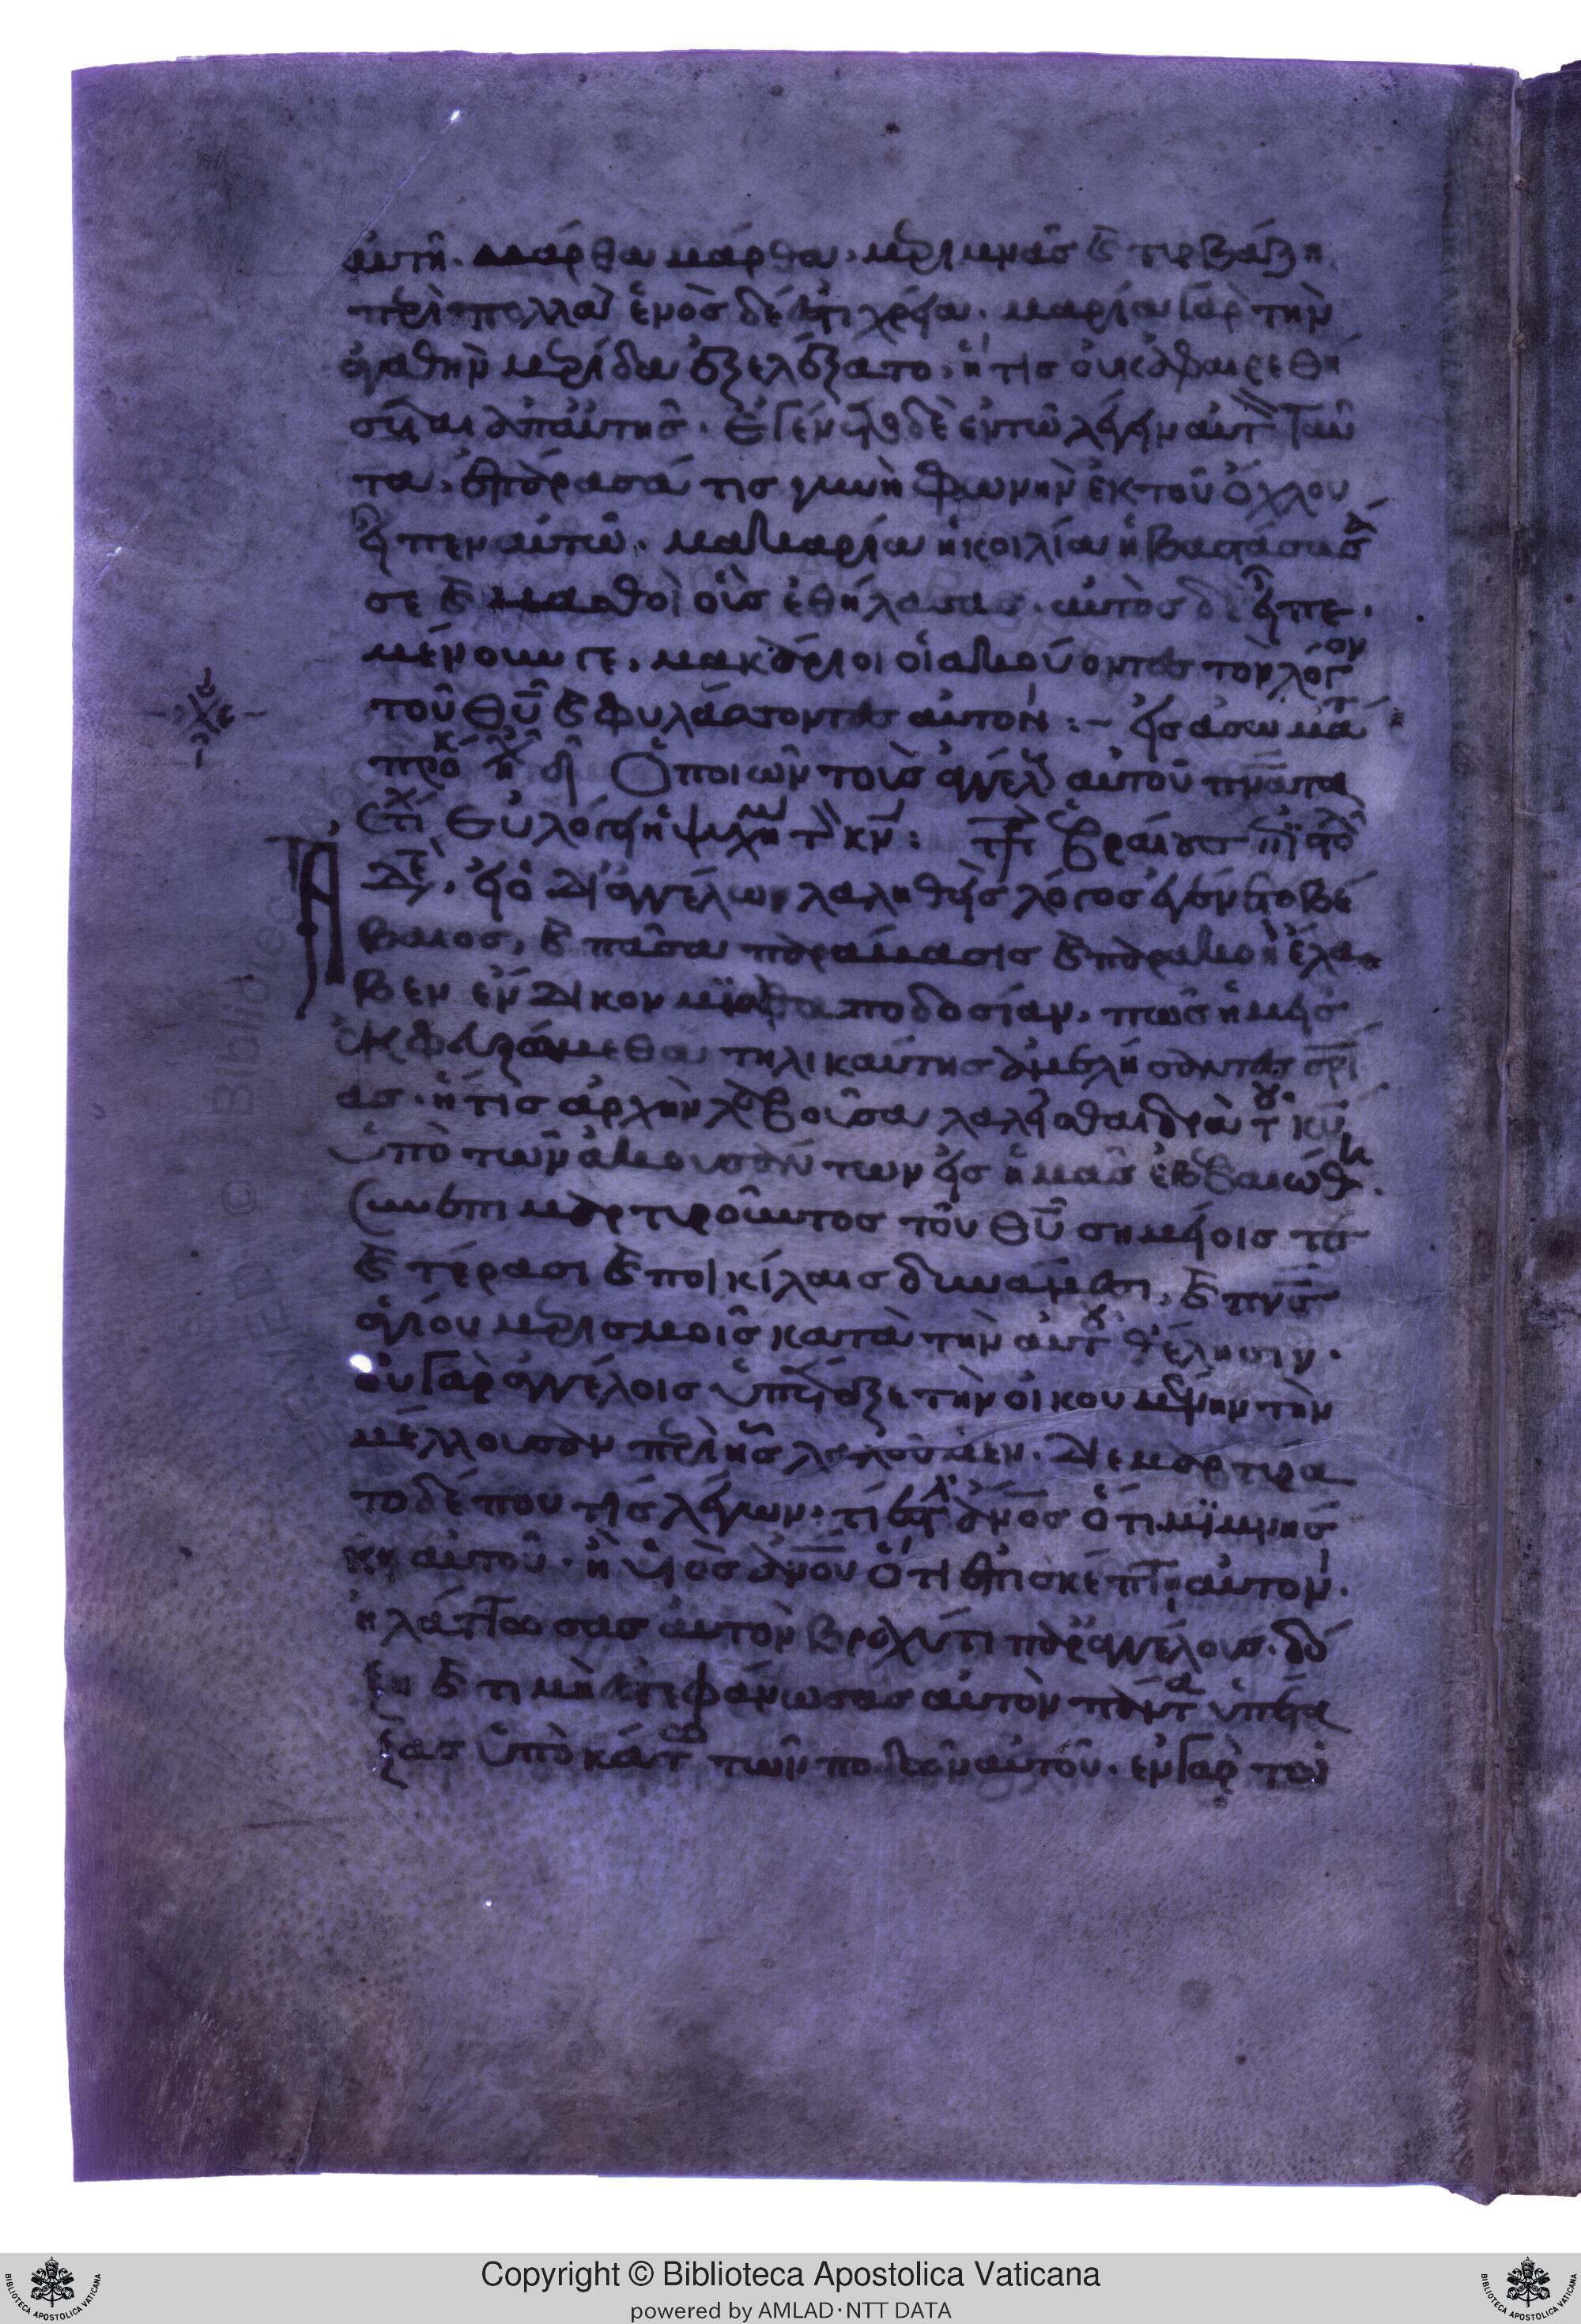 αὐτῆ. μάρθα μάρθα, μεριμνᾶς καὶ τυρβάζη
περὶ πολλὰ ἑνὸς δέ ἐστι χρεία. μαρία γὰρ τὴν
ἀγαθὴν μερίδα ἐξελέξατο, ἥτις οὐκ ἀφαιρεθή
σεται ἀπ' αὐτῆς. ἐγένετο δὲ ἐν τῶ λέγειν αὐτ ταῦ
τα, ἐπάρασά τις γυνὴ φωνὴν ἐκ τοῦ ὄχλου
εἶπεν αὐτῶ. μακαρία ἡ κοιλία ἡ βαστάσασά
σε καὶ μασθοὶ οὓς ἐθήλασας. αὐτὸς δὲ εἶπε.
μενοῦνγε, μακάριοι οἱ ἀκούοντες τὸν λόγον
τοῦ θῦ καὶ φυλάσσοντες αὐτόν :–
προκ Ὁ ποιῶν τοὺς ἀγγέλ αὐτοῦ πνάτα
στι Εὐλόγει ἡ ψυχή τ κν: πρ Ἑβραίους
Ἀδε, εἰ ὁ δι' ἀγγέλων λαληθεὶς λόγος ἐγένετο βέ
βαιος, καὶ πᾶσα παράβασις καὶ παρακοὴ ἔλα
βεν ἔνδικον μισθαποδοσίαν, πῶς ἡμεῖς
ἐκφευξόμεθα τηλικαύτης ἀμελήσαντες σρί
ας. ἥτις ἀρχὴν λαβοῦσα λαλεῖσθαι διὰ τοῦ κυ
ὑπὸ τῶν ἀκουσάντων εἰς ἡμᾶς ἐβεβαιώθη.
συνεπιμαρτυροῦντος τοῦ θῦ σημείοις τε
καὶ τέρασι καὶ ποικίλαις δυνάμεσι, καὶ πνς
ἁγίου μερισμοῖς κατὰ τὴν αὐτοῦ θέλησιν.
οὐ γὰρ ἀγγέλοις ὑπέταξε τὴν οἰκουμένην τὴν
μέλλουσαν περὶ ἧς λαλοῦμεν. διεμαρτύρα
το δέ που τὶς λέγων, τί ἐστι ἄνος ὅτι μιμνήσ
κη αὐτοῦ. ἢ υἱὸς ἀνου ὅτι ἐπισκέπτη αὐτόν.
ἠλάττωσας αὐτὸν βραχύ τι παρ' ἀγγέλους. δό
ξη καὶ τιμῆ ἐστεφάνωσας αὐτὸν πάντα ὑπέτα
ξας ὑποκάτω τῶν ποδῶν αὐτοῦ. ἐν γὰρ τῶ
Copyright © Biblioteca Apostolica Vaticana
powered by AMLAD·NTT DATA